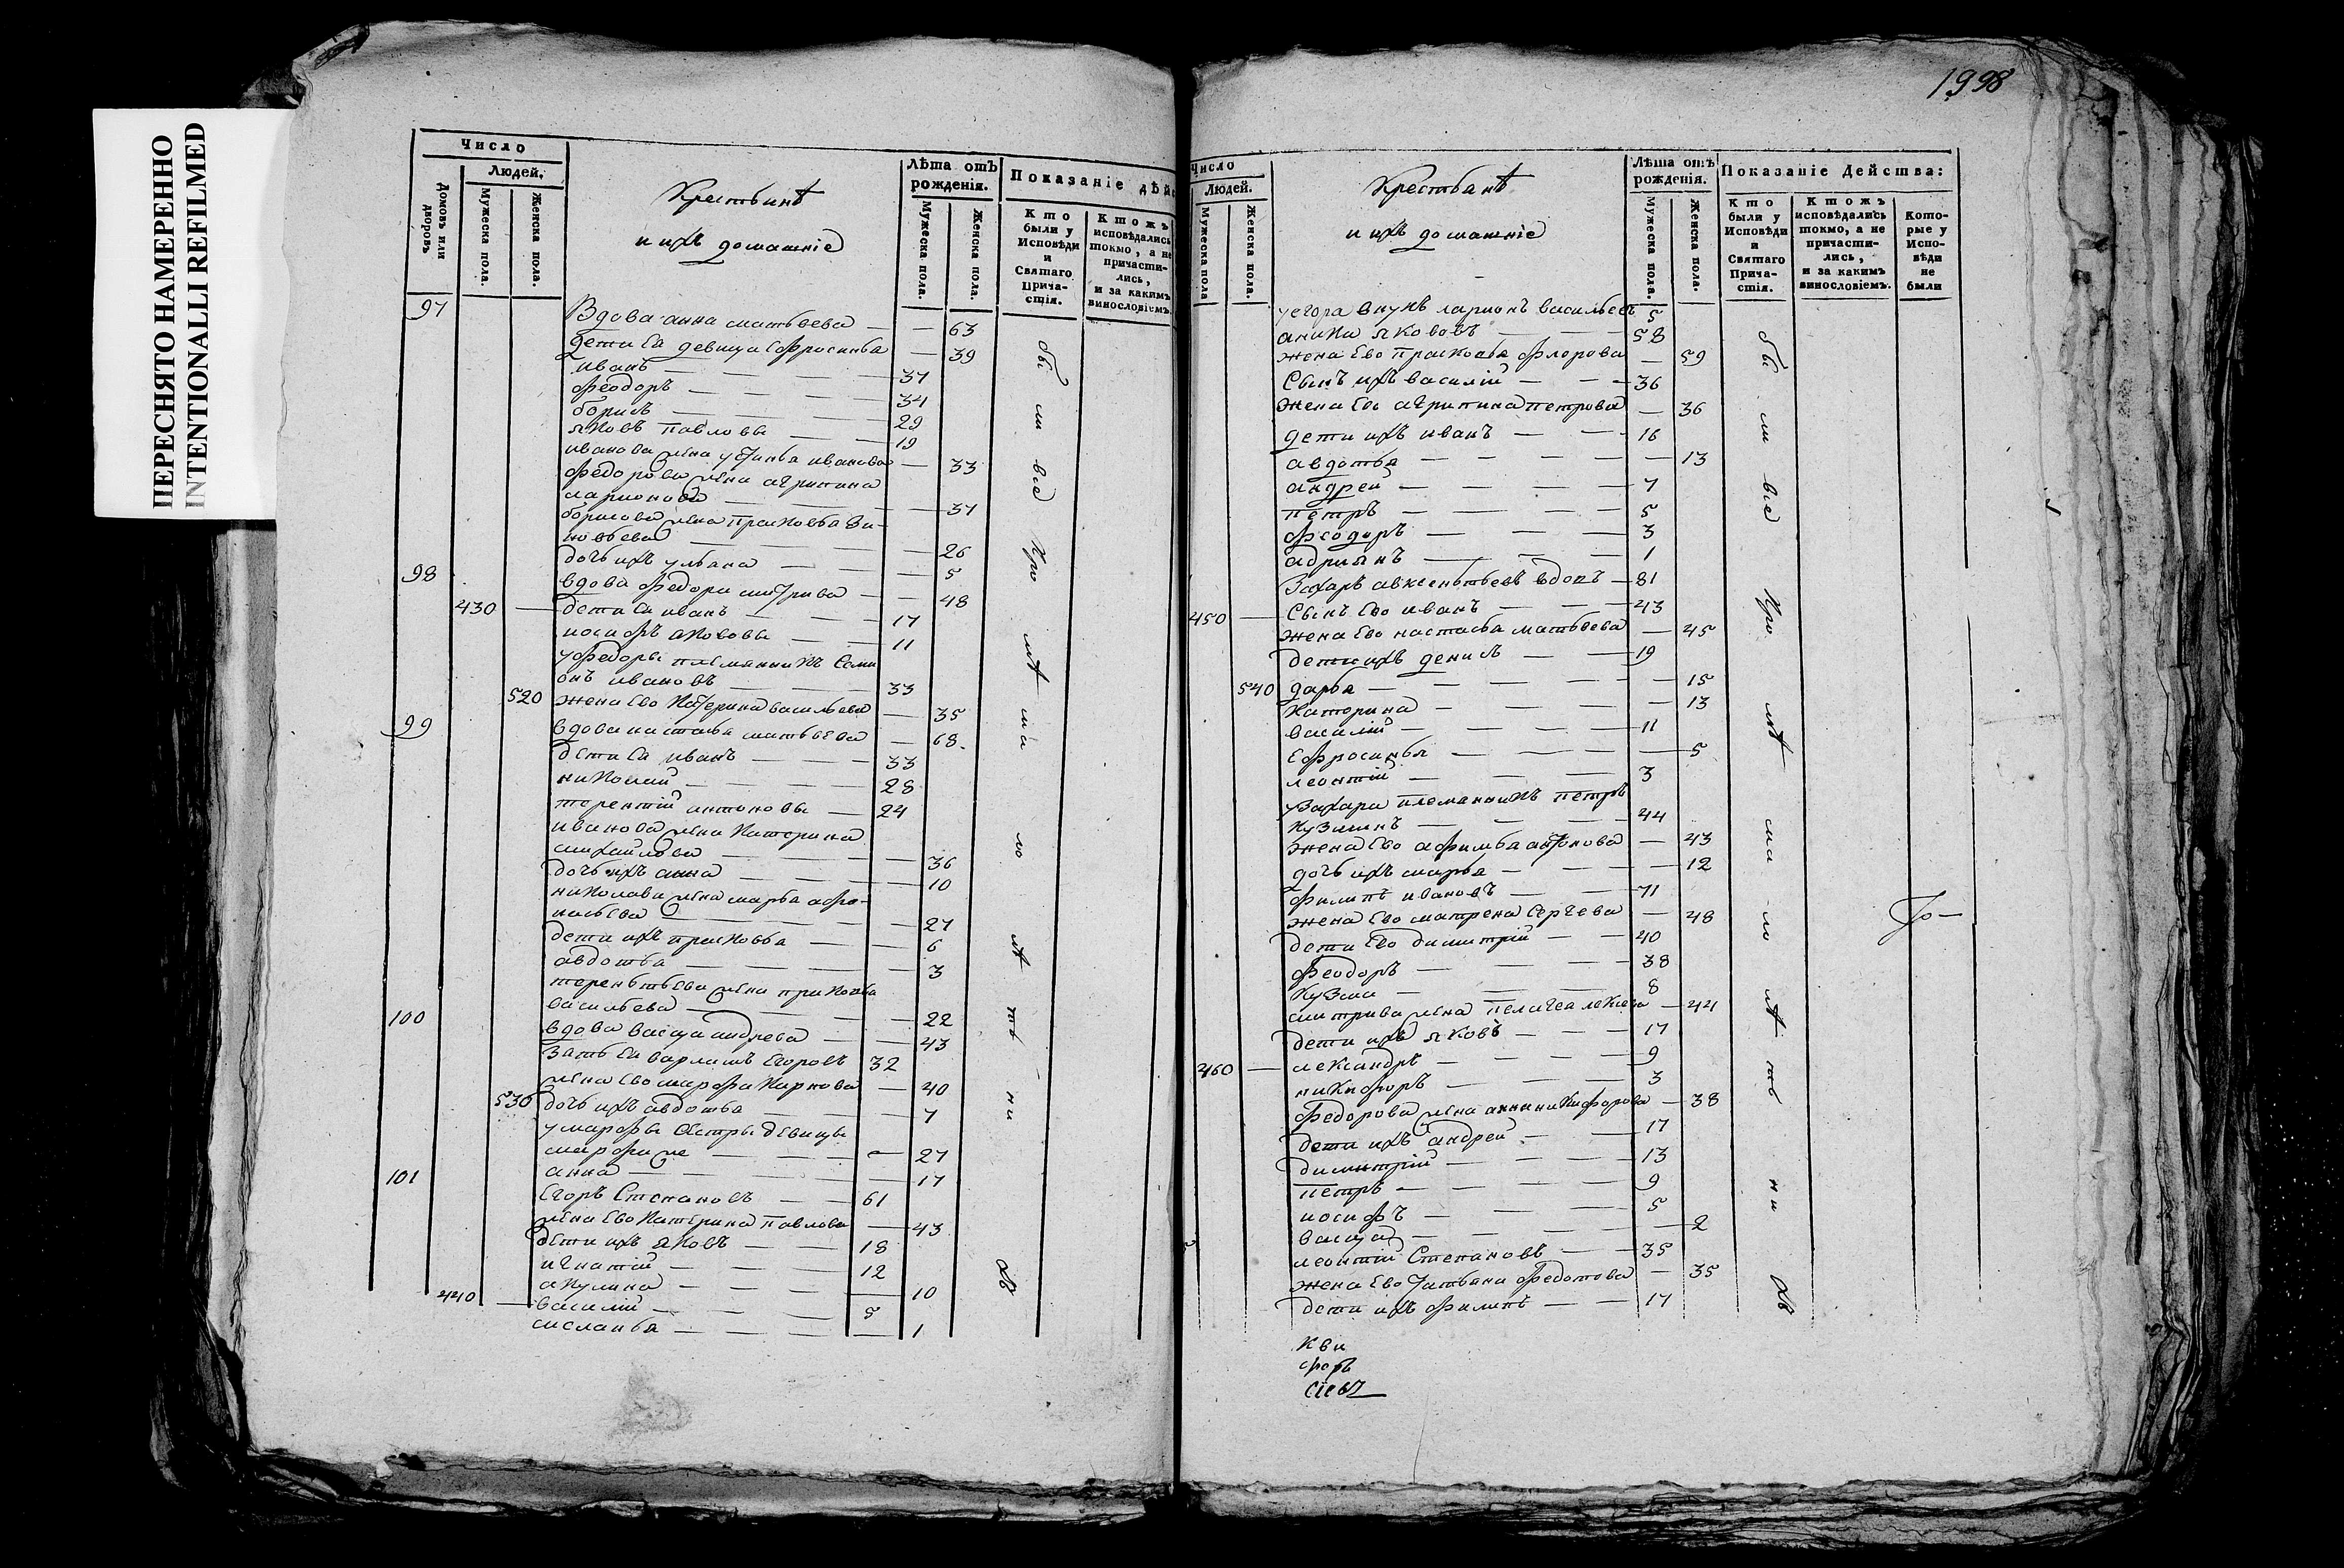 ПЕРЕСНЯТО НАМЕРЕННО
INTENTIONALLI REFILMED
Число
Людей.
Домовъ или дворовъ
Мужеска пола.
Женска пола.
Крестьянѣ
и ихъ домашніе
Лѣта отъ рожденія.
Мужеска пола.
Женска пола.
Показаніе дѣйс
Кто были у Исповѣди и Святаго Причастія.
Ктожъ исповѣдались токмо, а не причастились, и за какимъ винословіемъ.
97 Вдова анна матвеева — — 63
дети Ея девица Ефросинья — 39
иванъ — 37
феодоръ — 34
борисъ — 29
яковъ павловы — 19
иванова жена устинья иванова — 33
федорова жена агрипина
ларионова — 37
борисова жена прасковья зи-
новьева — 26
дочь ихъ ульана — 5
98 вдова федора митрива — 48
430 — дети Ея иванъ — 17
иосифъ яковлевы — 11
у федоры племянникъ Семи
онъ ивановъ — 33
520 жена Ево катерина васильева — 35
99 вдова настасья матвьева — 68.
дети Ея иванъ — 33
николай — 28
терентій антоновы — 24
иванова жена катерина
михайлова — 36
дочь ихъ анна — 10
николава жена марья афо-
насьева — 27
дети ихъ прасковья — 6
авдотья — 3
терентьева жена прасковья
васильева — 22
100 вдова васиса андреева — 43
зять Ея варламъ Егоровъ 32
жена Ево марфа карпова — 40
530 дочь ихъ авдотья — 7
у марфы сестры девицы
марфа же — 27
анна — 17
101 Егоръ Степановъ — 61
жена Ево катерина павлова — 43
дети ихъ яковъ — 18
игнатій — 12
акулина — 10
440 — василій — 5
меланья — 1
бы ли все про лѣ та ми лѣ тъ ни хъ
1998
Число
Людей.
Мужеска пола
Женска пола.
Крестьянѣ
и ихъ домашніе
Лѣта отъ рожденія.
Мужеска пола.
Женска пола.
Показаніе Действа:
Кто были у Исповѣди и Святаго Причастія.
Ктожъ исповѣдались токмо, а не причастились, и за какимъ винословіемъ.
Которые у Исповѣди не были
у егора внукъ ларионъ васильевъ 5
аника яковлевъ 58
жена Ево прасковья флорова — 59
Сынъ ихъ василій — 36
жена Ево агрипина петрова — 36
дети ихъ иванъ — 16
авдотья — 13
андрей — 7
петръ — 5
феодоръ — 3
адриянъ — 1
Захаръ авксентьевъ вдовъ — 81
450 — Сынъ Ево иванъ — 43
жена Ево настасья матвеева — 45
дети ихъ денисъ — 19
540 дарья — 15
катерина — 13
василій — 11
Ефросинья — 5
леонтій — 3
у Захара племянникъ петръ
кузминъ — 44
жена Ево афимья антонова — 43
дочь ихъ марья — 12
филипъ ивановъ — 71
жена Ево матрена Сергеева — 48
дети Ево димитрій — 40
феодоръ — 38
кузма — 8
митрива жена пелагеа лексева — 44
дети ихъ яковъ — 17
460 — александръ — 9
никифоръ — 3
федорова жена анна никифорова — 38
дети ихъ андрей — 17
димитрій — 13
петръ — 9
иосифъ — 5
васиса — 2
леонтій Степановъ — 35
жена Ево татьяна федотова — 35
дети ихъ филипъ — 17